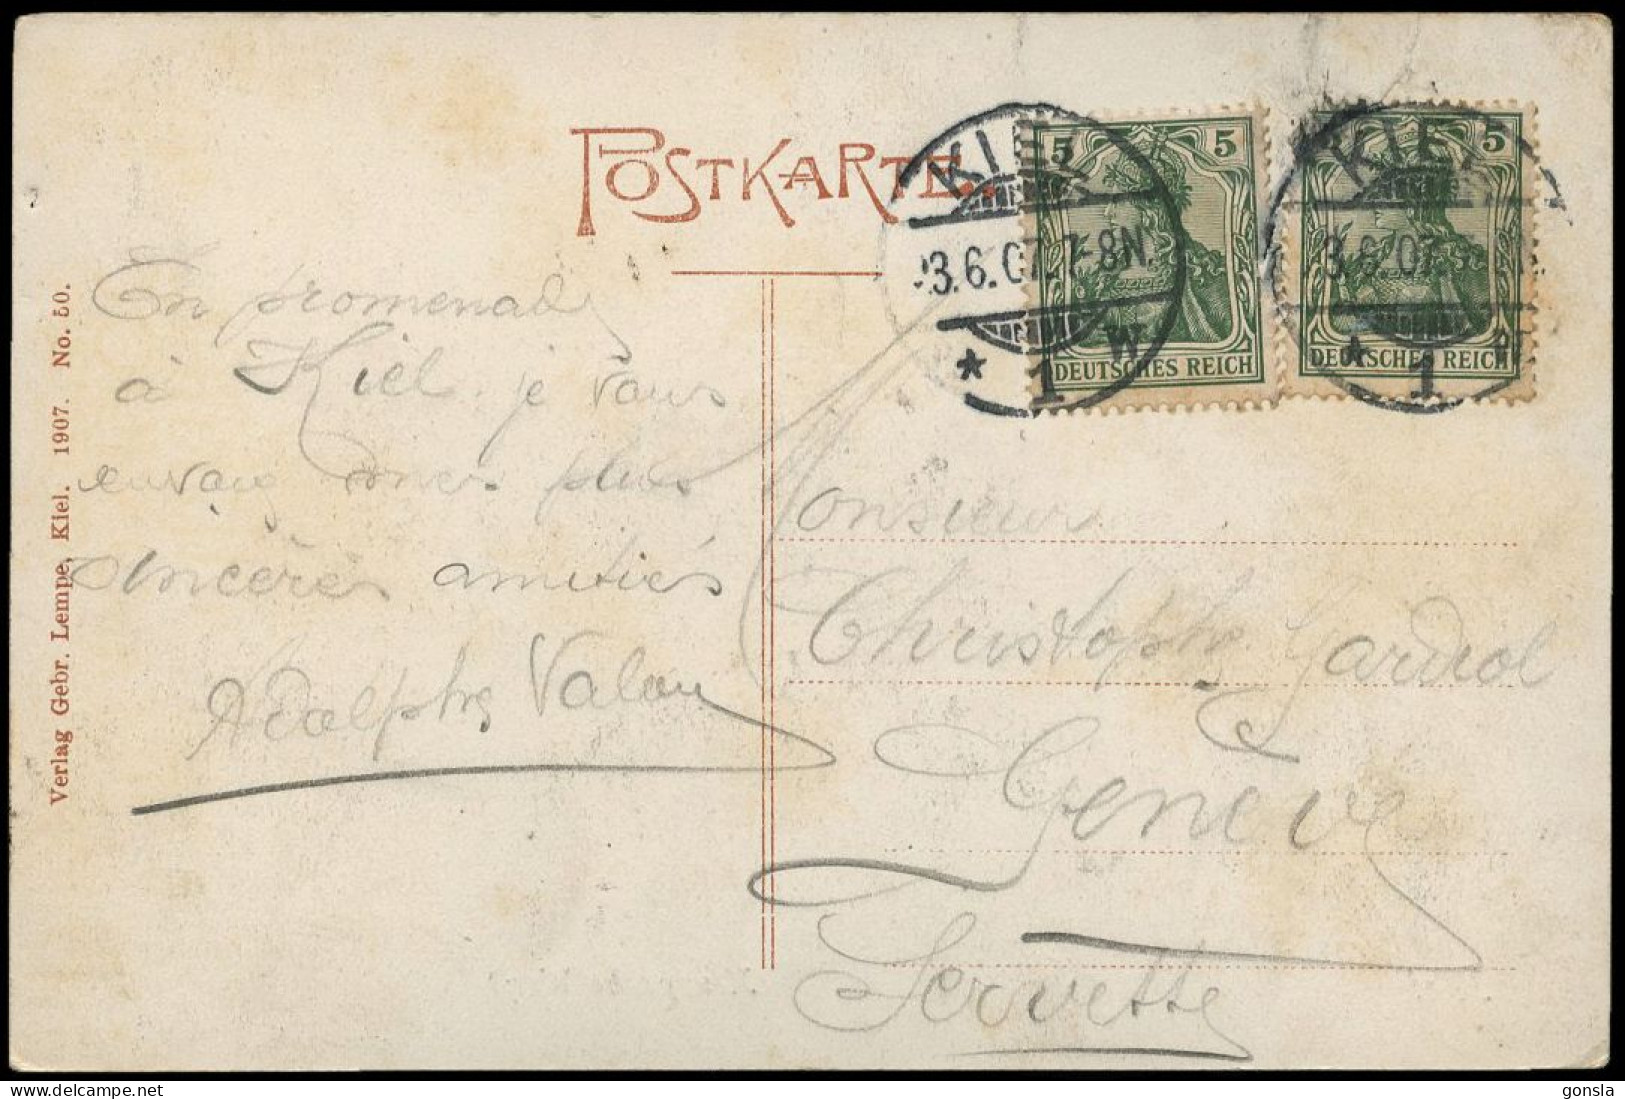 POSTKARTE.
KIEL
3.6.07.7-8N.
* 1 w
5 5
DEUTSCHES REICH
KIEL
3.6.07
* 1
5
DEUTSCHES REICH
En promenade
à Kiel. je vous
envoie mes plus
sincères amitiés
Adolphe
Monsieur
Christophe Gardiol
Genève
Servette
Verlag Gebr. Lempe, Kiel. 1907. No. 50.
gonsla